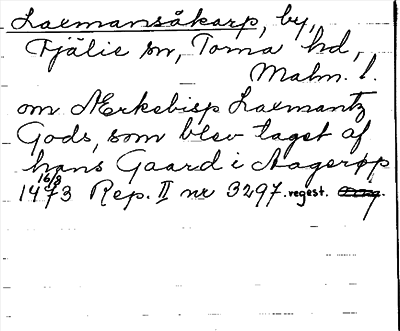 Laxmansåkarp, by,
Fjälie sn, Torna hd,
Malm. l.
om Ærkebisp Laxmantz
Gods, som blev taget af
hans Gaard i Aagerøp
16/8
1473 Rep. II nr 3297. regest.